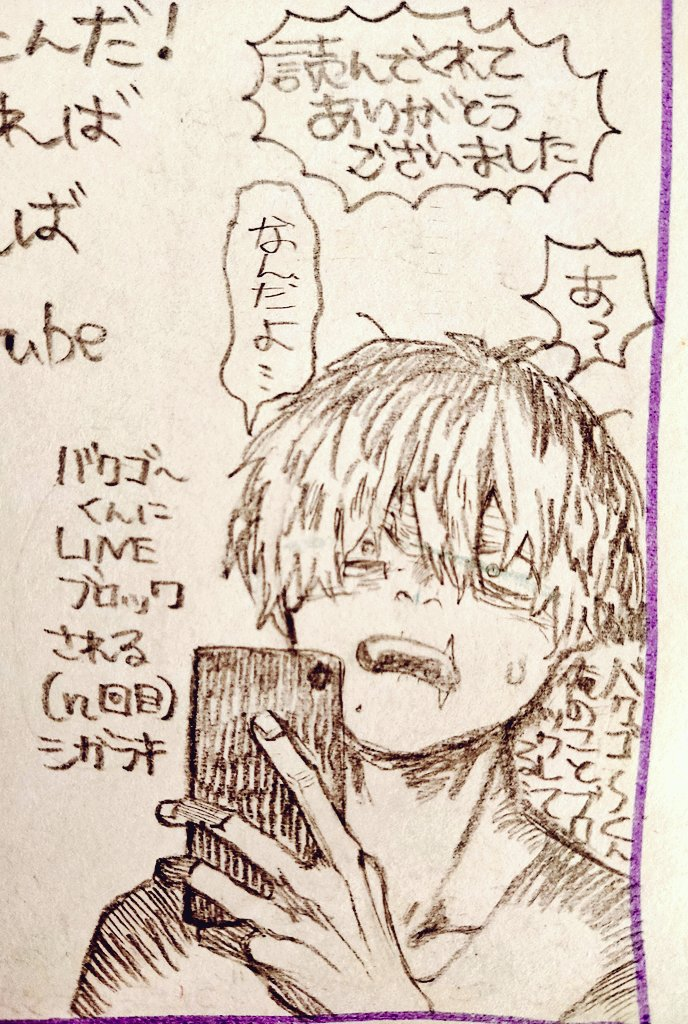 読んでくれて
ありがとう
ございました
あ〜
なんだよ…
んだ!
れば
ば
ube
バクゴ〜
くんに
LINE
ブロック
される
(n回目)
シガラキ
バクゴ〜くん
俺のこと